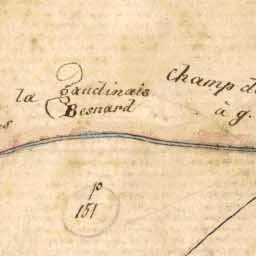 la gaudinais
Besnard
champ de
à g.
p
151